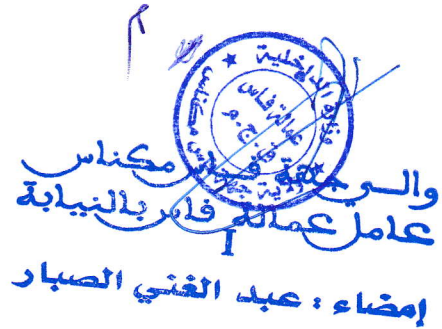 وزارة الداخلية
عمالة فاس
والي جهة فاس مكناس
عامل عمالة فاس بالنيابة
I
إمضاء : عبد الغني الصبار